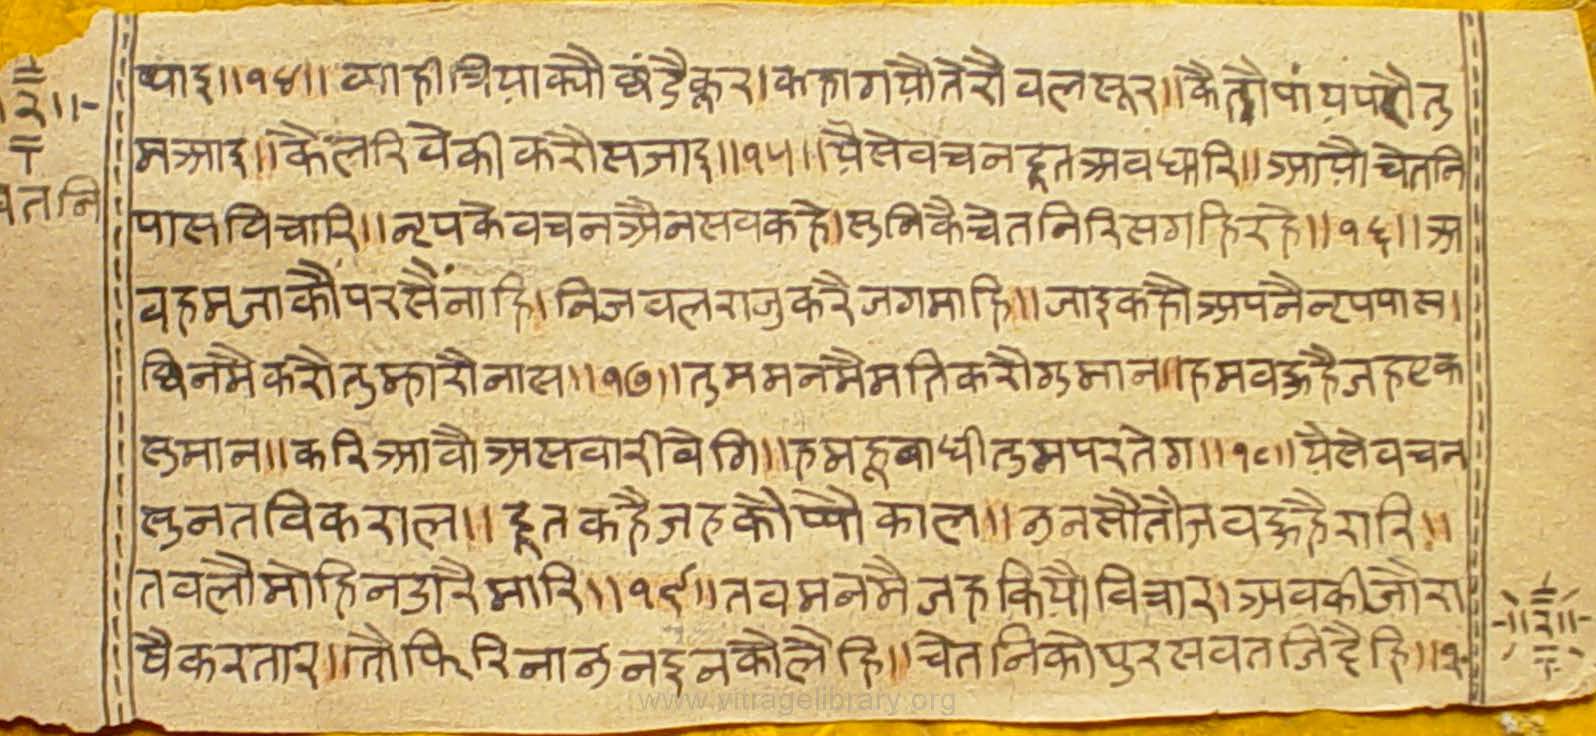 ष्याइ॥१४॥ व्याही त्रिया क्यौ छंडै कूर। कहा गयौ तेरौ वल सूर॥ कै तौ पांय परौ तु
म आइ॥ कै लरिवै की करौ सजाइ॥१५॥ यैसे वचन दूत अवधारि॥ आयौ चेतनि
पास विचारि॥ नृप के वचन अैन सव कहे। सुनिकै चेतनि रिस गहि रहे॥१६॥ अ
व हम जाकौं परसैं नाहि। निज वल राजु करै जग माहि॥ जाइ कहौ अपनै नृप पास।
छिन मै करौ तुम्हारौ नास॥१७॥ तुम मन मै मति करौ गुमान॥ हम वह है जह एक
सुमान॥ करि आवौ असवारी वेगि॥ हमहू बाधी तुम पर तेग॥१८॥ यैसे वचन
सुनत विकराल॥ दूत कहै जह कौप्यौ काल॥ उनसौ तौ जव ह्वहै रारि॥
तवलौ मोहि न डारै मारि॥१९॥ तव मन मै जह कियौ विचार। अव की जौ रा
षै करतार॥ तौ फिरि नाउ न इनकौ लेहि॥ चेतनि कौ पुर सव तजि देहि॥२
॥२॥
चेतनि
॥२॥
www.vitragelibrary.org